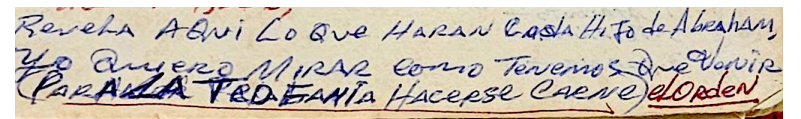 Revela AQui Lo Que HARAN Cada Hijo de Abraham,
Yo Quiero MIRAR como Tenemos Que Venir
(PARA LA TEOFANÍA HACERSE CARNE) el Orden